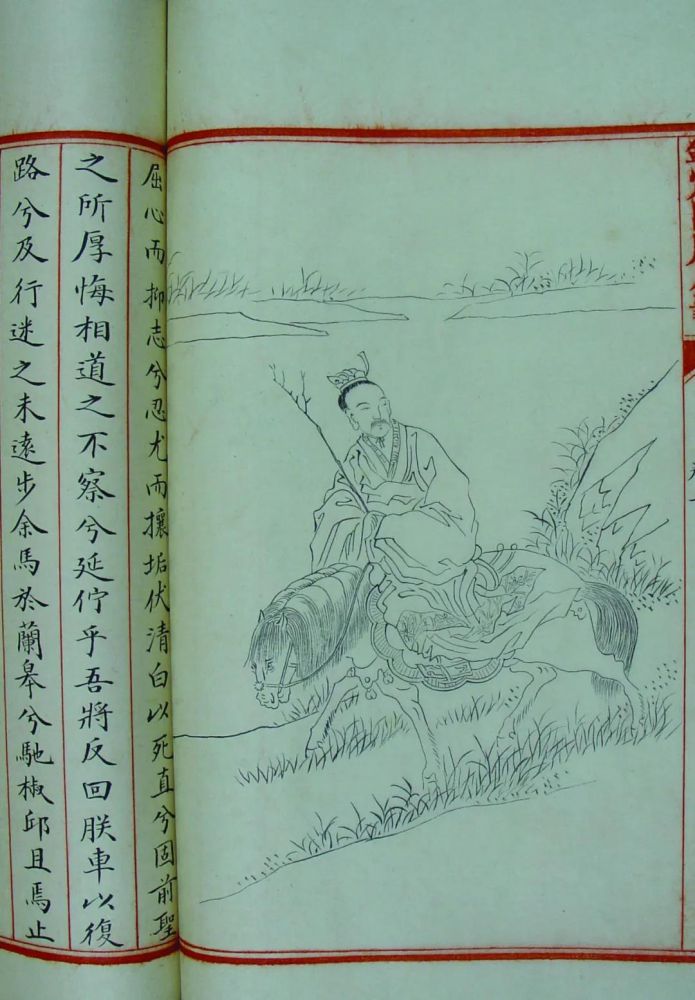 屈心而抑志兮忍尤而攘垢伏清白以死直兮固前聖
之所厚悔相道之不察兮延佇乎吾將反回朕車以復
路兮及行迷之未遠步余馬於蘭皋兮馳椒邱且焉止